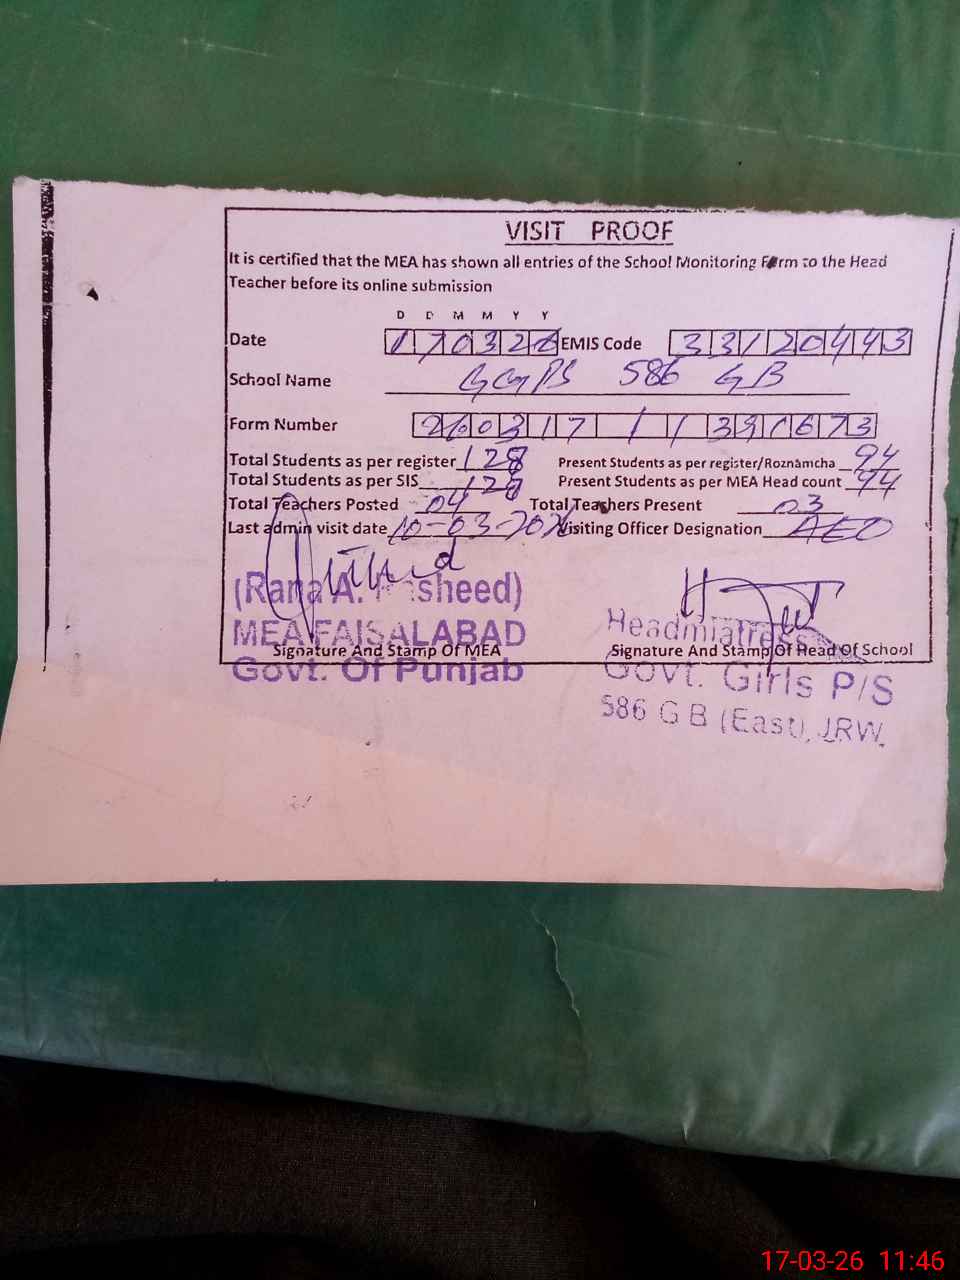 VISIT PROOF
It is certified that the MEA has shown all entries of the School Monitoring Form to the Head
Teacher before its online submission
D D M M Y Y
Date 170326 EMIS Code 33120443
School Name GGPS 586 GB
Form Number 260317 1 1 391673
Total Students as per register 128 Present Students as per register/Roznamcha 94
Total Students as per SIS 128 Present Students as per MEA Head count 94
Total Teachers Posted 04 Total Teachers Present 03
Last admin visit date 10-03-2026 Visiting Officer Designation AEO
(Rana A. Rasheed)
MEA FAISALABAD
Signature And Stamp Of MEA
Govt. Of Punjab
Headmistress
Signature And Stamp Of Head Of School
Govt. Girls P/S
586 G B (East), JRW.
17-03-26 11:46